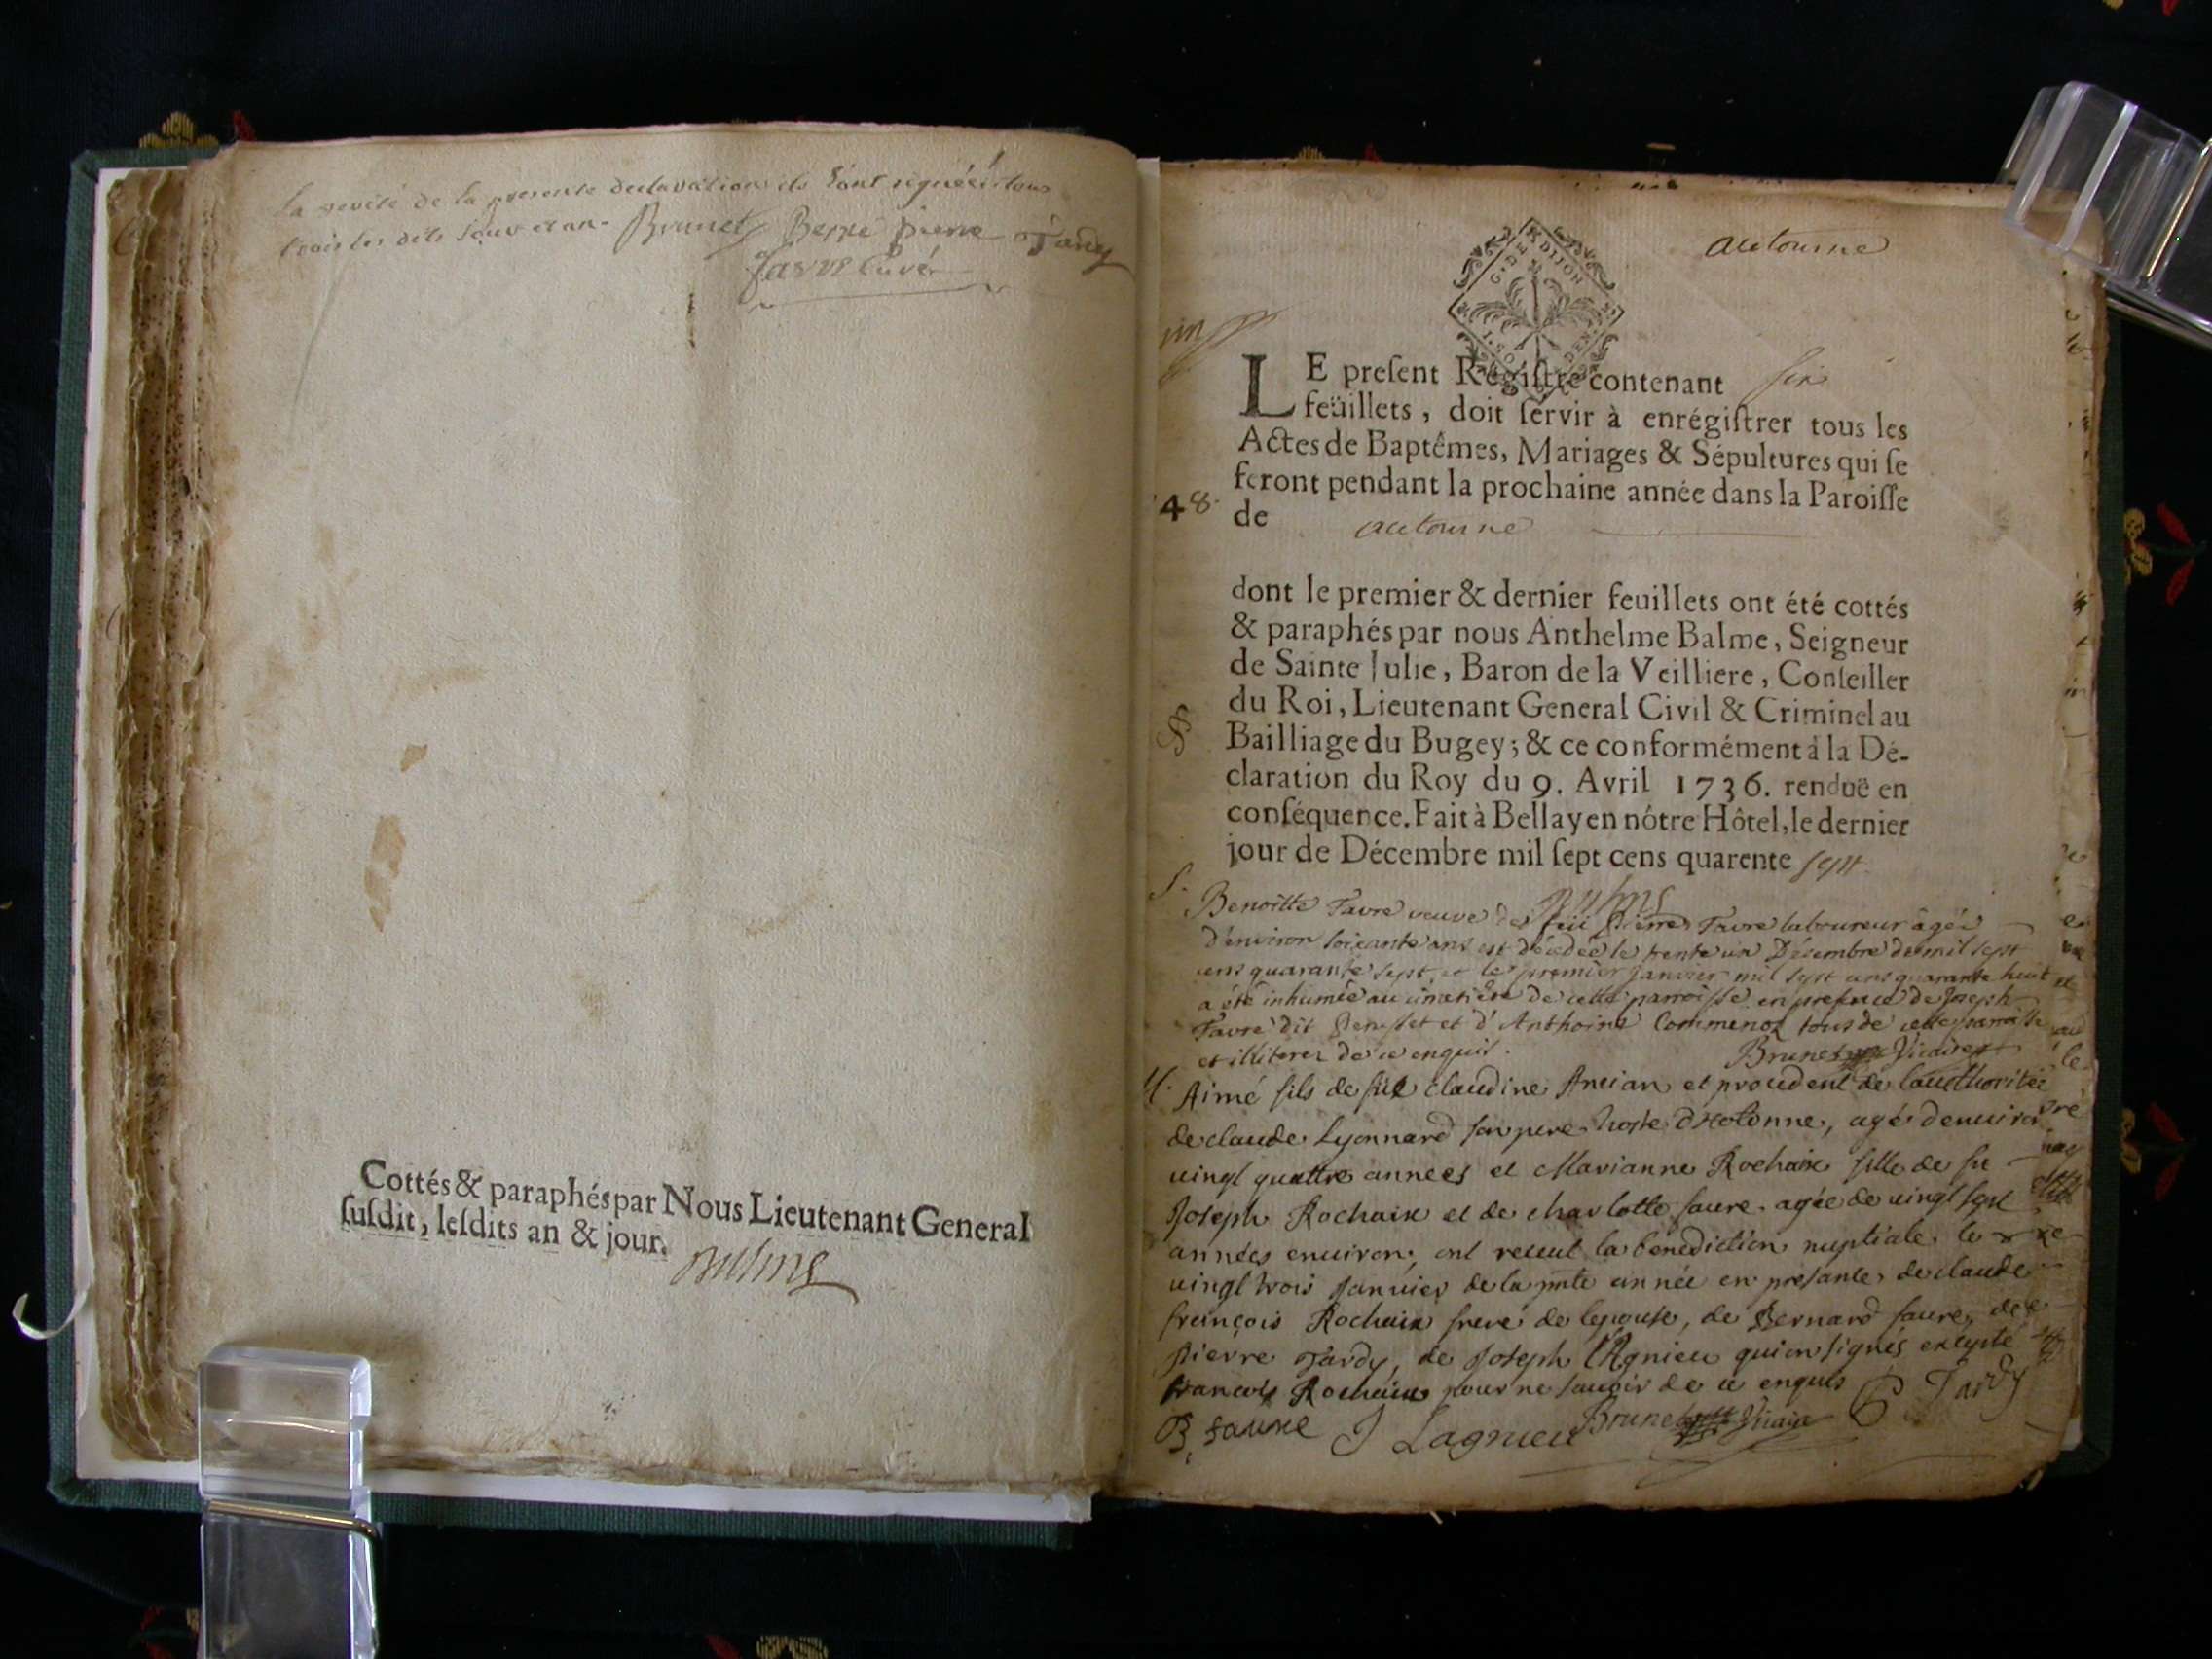 La verité de la presente declaration ils sont signéés tous
trois les dits jour et an. Brunet Berre pierre Tardy
favre Curé
Cottés & paraphés par Nous Lieutenant General
ſuſdit, leſdits an & jour.
Balme
autourne
G. DE DIJON
LE preſent Regiſtre contenant six
feüillets, doit ſervir à enrégiſtrer tous les
Actes de Baptêmes, Mariages & Sépultures qui ſe
feront pendant la prochaine année dans la Paroiſſe
48.
de autourne
dont le premier & dernier feuillets ont été cottés
& paraphés par nous Anthelme Balme, Seigneur
de Sainte Julie, Baron de la Veilliere, Conſeiller
du Roi, Lieutenant General Civil & Criminel au
Bailliage du Bugey; & ce conformément á la Dé-
claration du Roy du 9. Avril 1736. renduë en
conſéquence. Fait à Bellay en nôtre Hôtel, le dernier
jour de Décembre mil ſept cens quarente sept.
Balme
S. Benoitte Favre veuve de feu pierre Favre laboureur âgéé
d'environ soixante ans est décédée le trente un Décembre de mil sept
cens quarante sept, et le premier janvier mil sept cens quarante huit
a été inhumée au cimetière de cette parroisse en presence de Joseph
Favre dit et d'Anthoine Commenoz tous de cette parroisse
et illiterez de ce enquis. Brunet Vicaire
M. Aimé fils de fût claudine Ancian et procédent de lauthoritée
de claude Lyonnard son pere hoste D'hotonne, agé denviron
vingt quattre annees et Marianne Rochaix fille de fu
Joseph Rochaix et de charlotte faure agée de vingt sept
années environ, ont receut la benediction nuptiale le
vingt trois Janvier de la pnte année en presante de claude
françois Rochaix frere de lepouse, de Bernard faure, de
pierre Tardy, de Joseph l'Agnieu qui on signés excepté
francois Rochaix pour ne savoir de ce enquis P Tardy
B faure J Lagnieu Brunet Vicaire